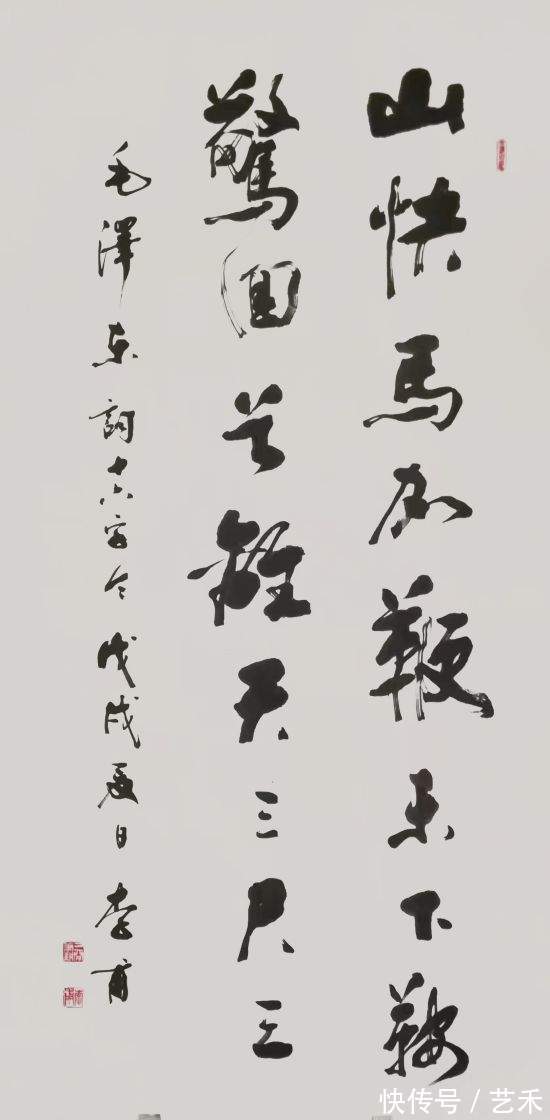 山快馬加鞭未下鞍
驚回首離天三尺三
毛澤东詞十六字令戊戌夏日李甫
快传号/艺禾